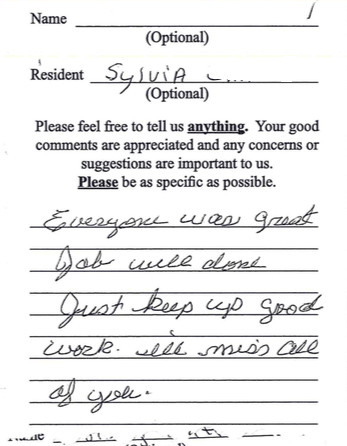 Name
(Optional)
Resident Sylvia
(Optional)
Please feel free to tell us anything. Your good
comments are appreciated and any concerns or
suggestions are important to us.
Please be as specific as possible.
Everyone was great
Job well done
Just keep up good
work. I'll miss all
of you.